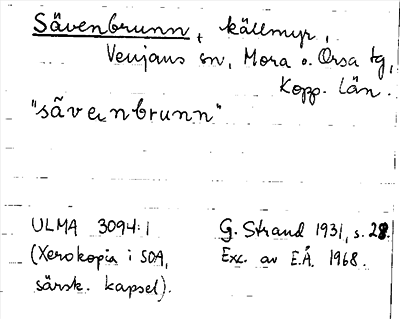 Sävenbrunn, källmyr,
Venjans sn, Mora o. Orsa tg,
Kopp. län.
"sãvenbrunn"
ULMA 3094:1
(Xerokopia i SOA,
särsk. kapsel).
G. Strand 1931, s. 28.
Exc. av E.Å. 1968.